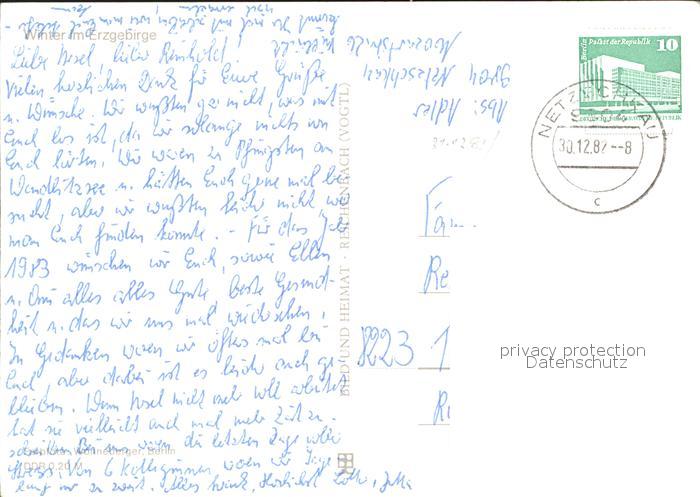 Winter im Erzgebirge
Liebe Ursel, lieber Reinhold!
Vielen herzlichen Dank für Eure Grüße
u. Wünsche. Wir wußten gar nicht, was mit
Euch los ist, da wir solange nichts von
Euch hörten. Wir waren zu Pfingsten am
Wandlitzsee u. hätten Euch gerne mal be-
sucht, aber wir wußten leider nicht wo
man Euch finden konnte. - Für das Jahr
1983 wünschen wir Euch, sowie Ellen
u. Omi alles alles Gute, beste Gesund-
heit u. das wir uns mal wiedersehen.
In Gedanken waren wir öfters mal bei
Euch, aber dabei ist es leider auch ge-
blieben. Wenn Ursel nicht mehr voll arbeitet
hat sie vielleicht auch mal mehr Zeit zu
schreiben. Bei uns waren die letzten Tage
Von 6 Kolleginnen waren wir Tage
lang nur zu zweit. Alles
Berlin
DDR 0,20 M
BILD UND HEIMAT · REICHENBACH (VOGTL)
Abs: Adler
9804 Netzschkau
31.12.82
Berlin Palast der Republik
10
NETZSCHKAU
30.12.82--8
c
Fam.
Re
8223 1
privacy protection
Datenschutz